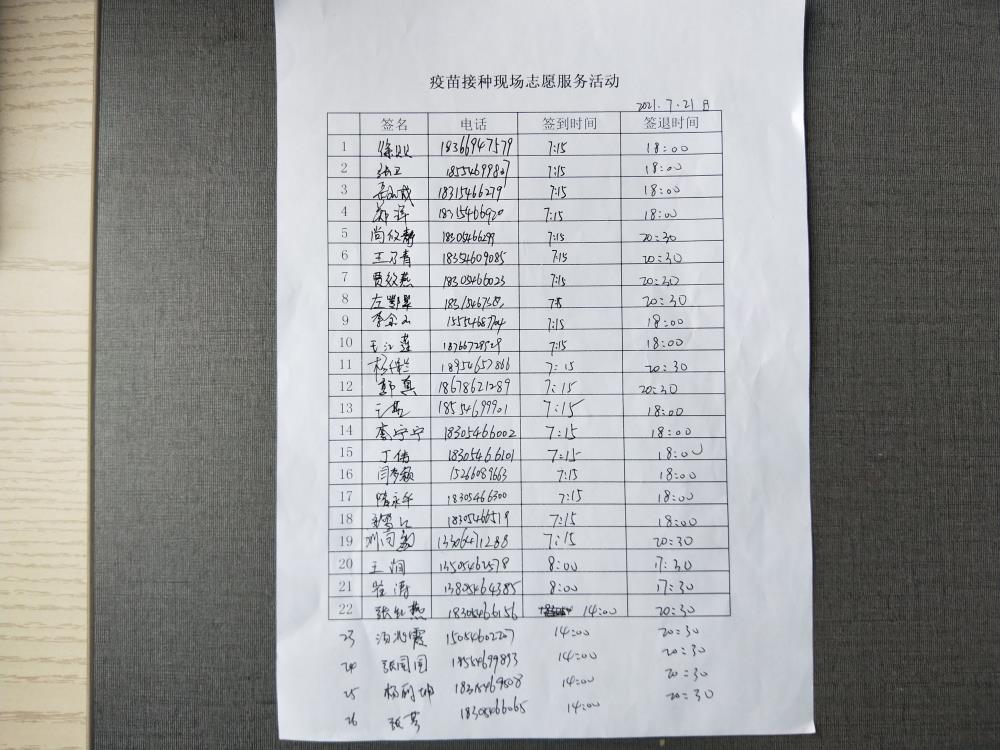 疫苗接种现场志愿服务活动
2021.7.21日
签名 电话 签到时间 签退时间
1 18366947579 7:15 18:00
2 张卫 7:15 18:00
3 18315466279 7:15 18:00
4 郑洋 18315466920 7:15 18:00
5 尚效静 18305466299 7:15 20:30
6 王乃青 18354609085 7:15 20:30
7 贾效燕 18305466023 7:15 20:30
8 20:30
9 李金玉 7:15 18:00
10 王江莲 7:15 18:00
11 18954657866 7:15 20:30
12 郭真 18678621289 7:15 20:30
13 18554699901 7:15 18:00
14 李宁宁 18305466002 7:15 18:00
15 丁伟 18305466101 7:15 18:00
16 闫梦颖 15266089663 7:15 18:00
17 隋永华 18305466300 7:15 18:00
18 18305466519 7:15 18:00
19 13306471288 7:15 20:30
20 13505462578 8:00 17:30
21 崔涛 13805464385 8:00 17:30
22 张红燕 18305466156 14:00 20:30
23 15054602207 14:00 20:30
24 张园园 18554699893 14:00 20:30
25 18315469508 14:00 20:30
26 18305466065 14:00 20:30